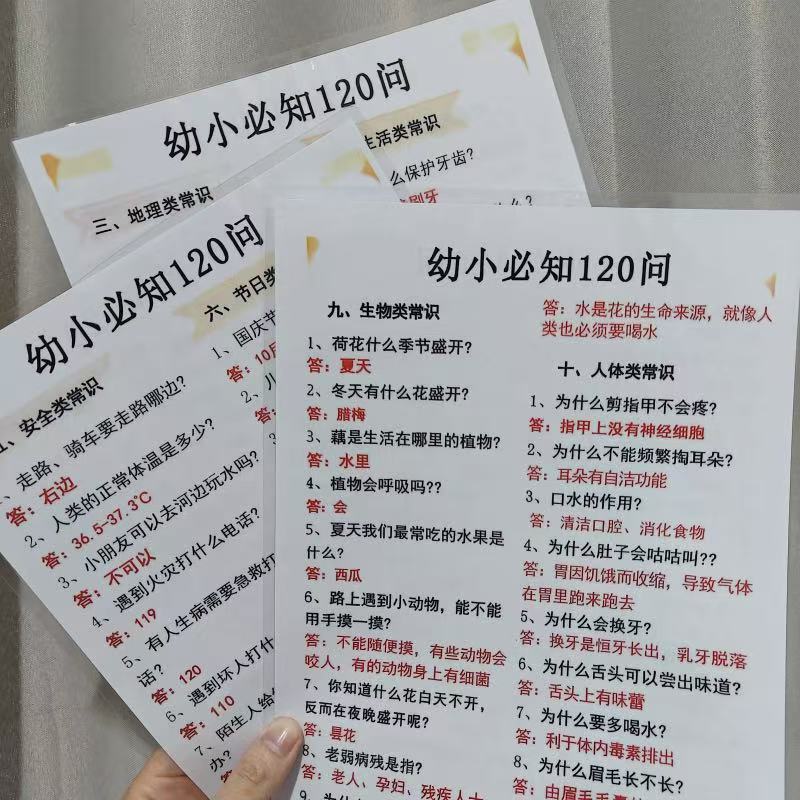 幼小必知120问
三、地理类常识
生活类常识
么保护牙齿?
刷牙
幼小必知120问
安全类常识
走路、骑车要走路哪边?
答：右边
2、人类的正常体温是多少?
答：36.5-37.3℃
3、小朋友可以去河边玩水吗?
答：不可以
4、遇到火灾打什么电话?
答：119
5、有人生病需要急救打
话?
答：120
6、遇到坏人打什
答：110
7、陌生人给
办?
六、节日类
1、国庆节
答：10月
2、儿
幼小必知120问
九、生物类常识
1、荷花什么季节盛开?
答：夏天
2、冬天有什么花盛开?
答：腊梅
3、藕是生活在哪里的植物?
答：水里
4、植物会呼吸吗??
答：会
5、夏天我们最常吃的水果是
什么?
答：西瓜
6、路上遇到小动物，能不能
用手摸一摸?
答：不能随便摸，有些动物会
咬人，有的动物身上有细菌
7、你知道什么花白天不开，
反而在夜晚盛开呢?
答：昙花
8、老弱病残是指?
答：老人、孕妇、残疾人士
答：水是花的生命来源，就像人
类也必须要喝水
十、人体类常识
1、为什么剪指甲不会疼?
答：指甲上没有神经细胞
2、为什么不能频繁掏耳朵?
答：耳朵有自洁功能
3、口水的作用?
答：清洁口腔、消化食物
4、为什么肚子会咕咕叫??
答：胃因饥饿而收缩，导致气体
在胃里跑来跑去
5、为什么会换牙?
答：换牙是恒牙长出，乳牙脱落
6、为什么舌头可以尝出味道?
答：舌头上有味蕾
7、为什么要多喝水?
答：利于体内毒素排出
8、为什么眉毛长不长?
答：由眉毛毛